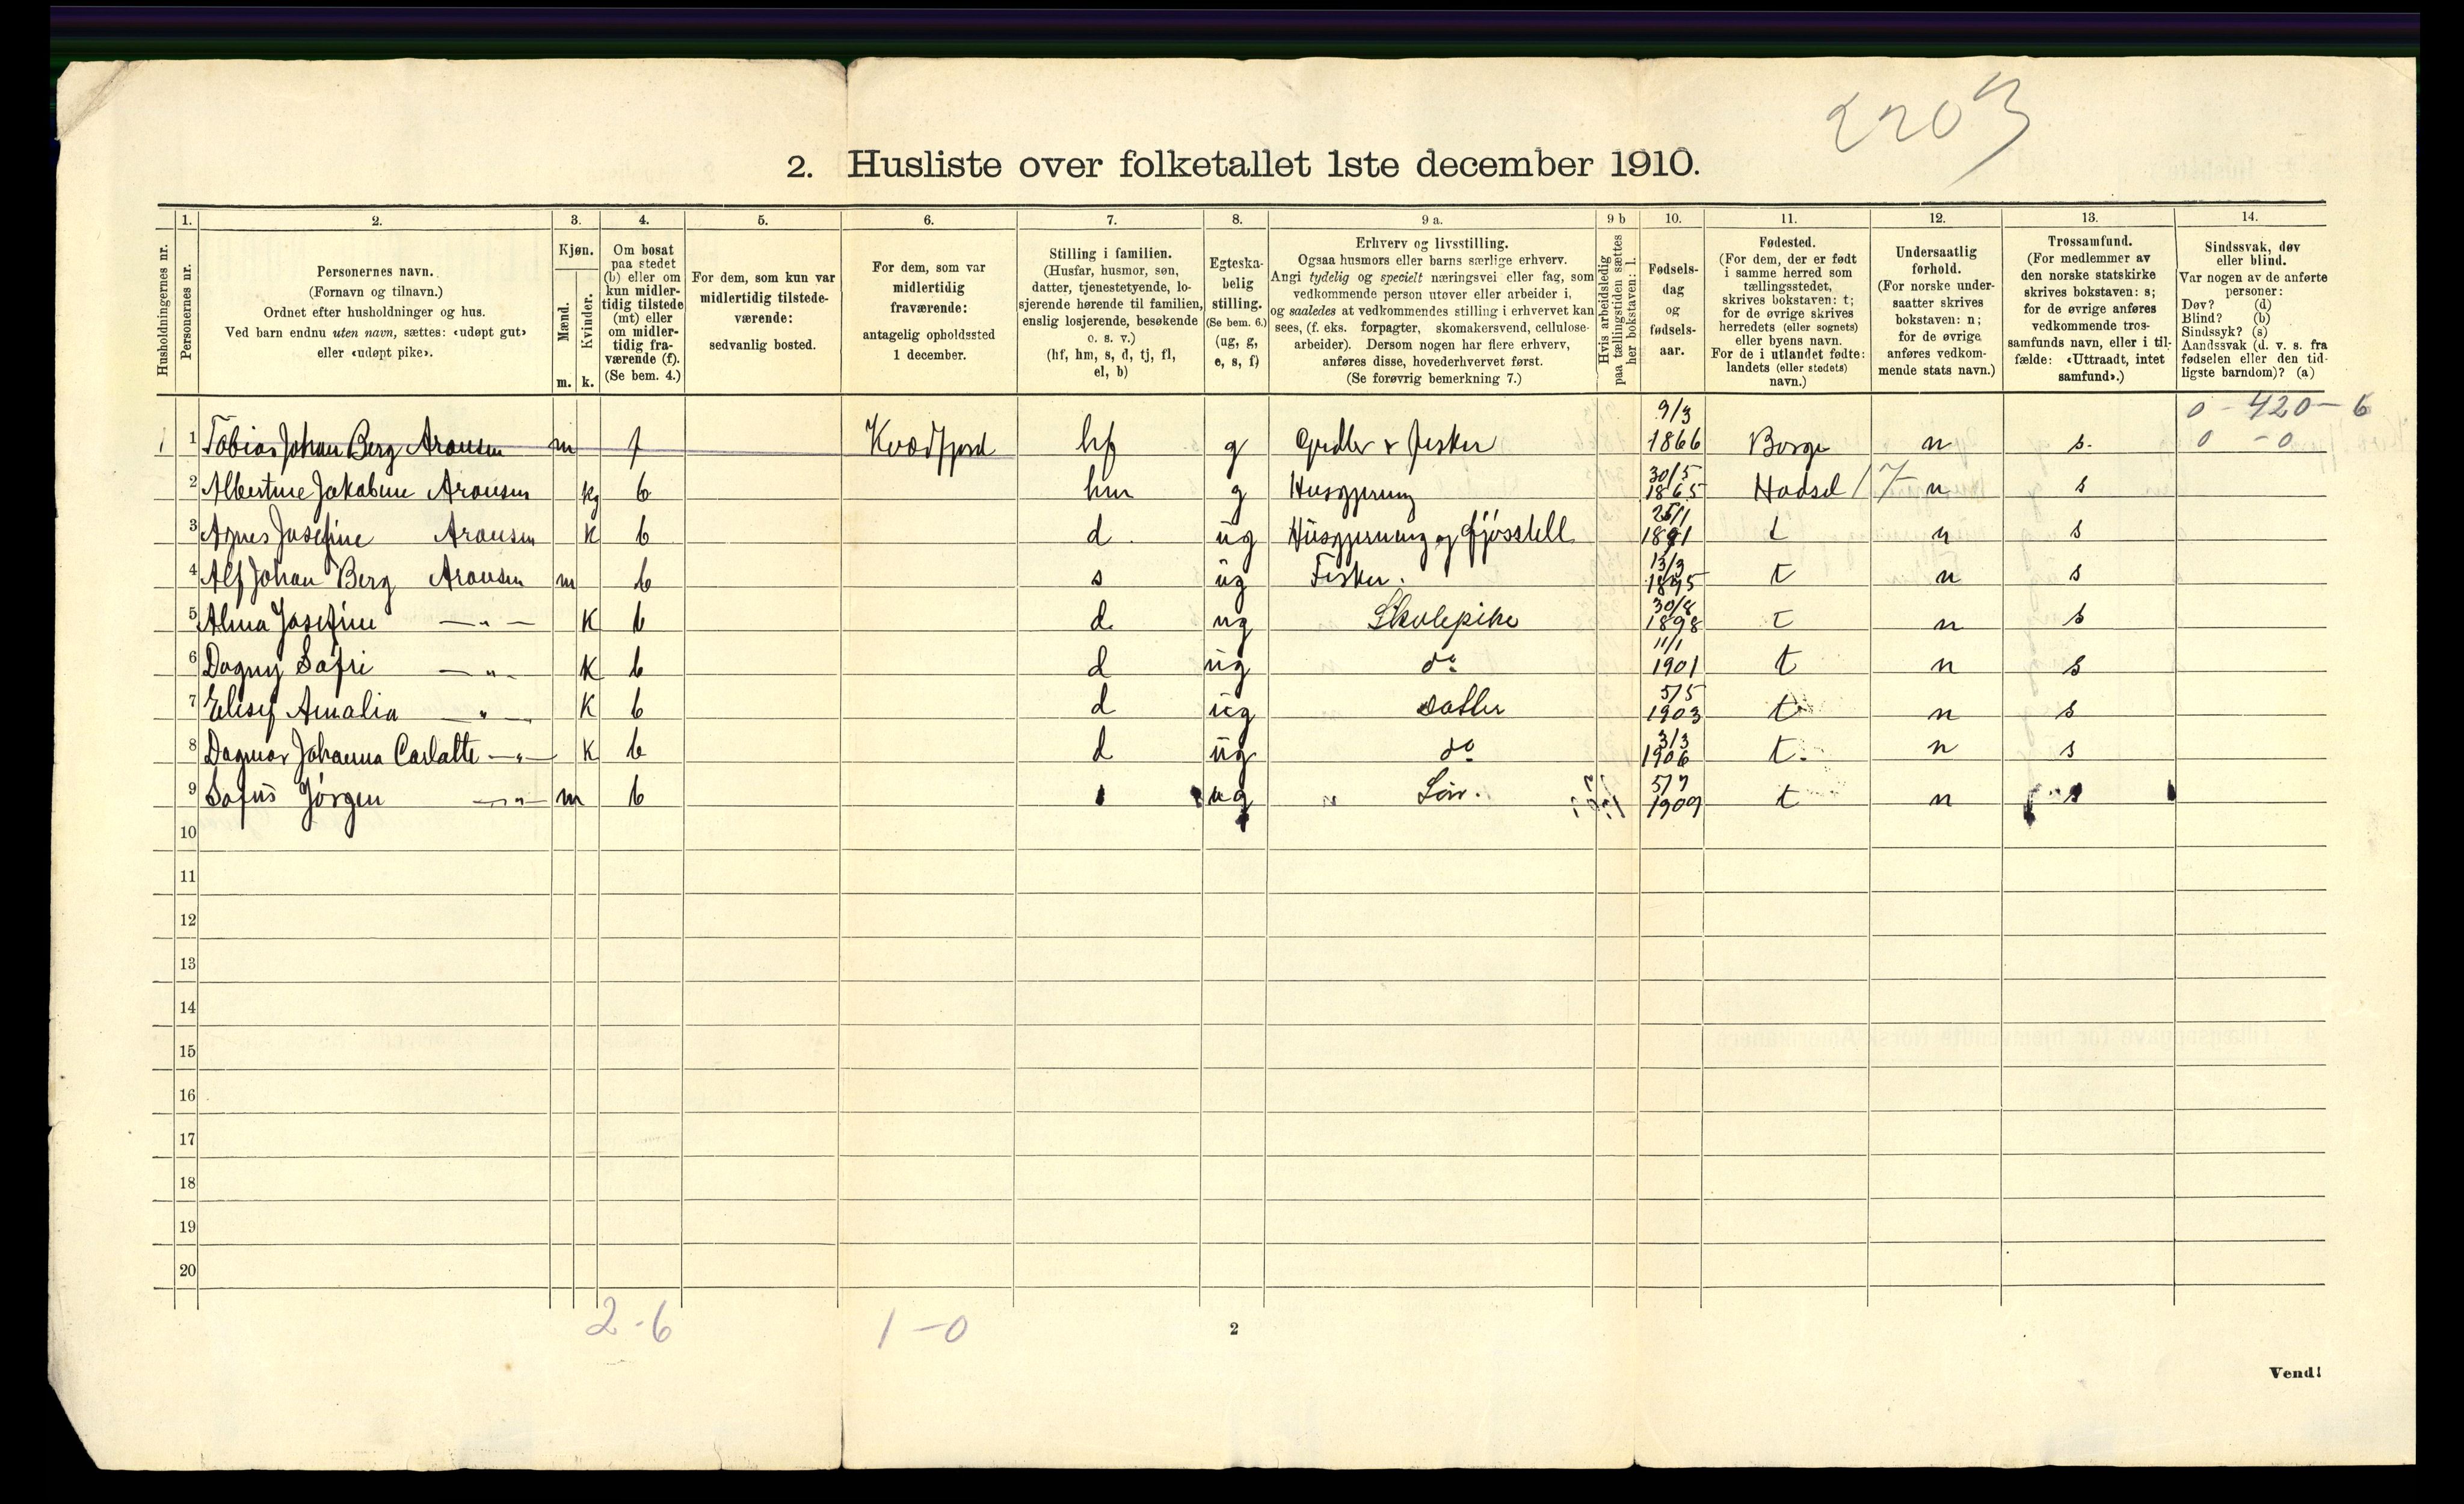 2203
2. Husliste over folketallet 1ste december 1910.
1. 2. 3. 4. 5. 6. 7. 8. 9 a. 9 b 10. 11. 12. 13. 14.
Husholdningernes nr.
Personernes nr.
Personernes navn.
(Fornavn og tilnavn.)
Ordnet efter husholdninger og hus.
Ved barn endnu uten navn, sættes: «udøpt gut»
eller «udøpt pike».
Kjøn.
Mænd.
Kvinder.
m. k.
Om bosat
paa stedet
(b) eller om
kun midler-
tidig tilstede
(mt) eller
om midler-
tidig fra-
værende (f).
(Se bem. 4.)
For dem, som kun var
midlertidig tilstede-
værende:
sedvanlig bosted.
For dem, som var
midlertidig
fraværende:
antagelig opholdssted
1 december.
Stilling i familien.
(Husfar, husmor, søn,
datter, tjenestetyende, lo-
sjerende hørende til familien,
enslig losjerende, besøkende
o. s. v.)
(hf, hm, s, d, tj, fl,
el, b)
Egteska-
belig
stilling.
(Se bem. 6.)
(ug, g,
e, s, f)
Erhverv og livsstilling.
Ogsaa husmors eller barns særlige erhverv.
Angi tydelig og specielt næringsvei eller fag, som
vedkommende person utøver eller arbeider i,
og saaledes at vedkommendes stilling i erhvervet kan
sees, (f. eks. forpagter, skomakersvend, cellulose-
arbeider). Dersom nogen har flere erhverv,
anføres disse, hovederhvervet først.
(Se forøvrig bemerkning 7.)
Hvis arbeidsledig
paa tællingstiden sættes
her bokstaven: l.
Fødsels-
dag
og
fødsels-
aar.
Fødested.
(For dem, der er født
i samme herred som
tællingsstedet,
skrives bokstaven: t;
for de øvrige skrives
herredets (eller sognets)
eller byens navn.
For de i utlandet fødte:
landets (eller stedets)
navn.)
Undersaatlig
forhold.
(For norske under-
saatter skrives
bokstaven: n;
for de øvrige
anføres vedkom-
mende stats navn.)
Trossamfund.
(For medlemmer av
den norske statskirke
skrives bokstaven: s;
for de øvrige anføres
vedkommende tros-
samfunds navn, eller i til-
fælde: «Uttraadt, intet
samfund».)
Sindssvak, døv
eller blind.
Var nogen av de anførte
personer:
Døv? (d)
Blind? (b)
Sindssyk? (s)
Aandssvak (d. v. s. fra
fødselen eller den tid-
ligste barndom)? (a)
0 - 420 - 6
0 - 0
1 1 Tobias Johan Berg Aronsen m f Kvædfjord hf g Grdbr & fisker 9/3 1866 Borge n s.
2 Albertine Jakobine Aronsen kg b hm g Husgjerning 30/5 1865 Hadsel n s
3 Agnes Josefine Aronsen K b d. ug Husgjerning og fjøsstell 25/1 1891 t n s
4 Alf Johan Berg Aronsen m b s ug Fisker. 13/3 1895 t n s
5 Alma Josefine —„— K b d ug Skolepike 30/8 1898 t n s
6 Dagny Safri —„— K b d ug do 11/1 1901 t n s
7 Elisif Amalia —„— K b d ug datter 5/5 1903 t n s
8 Dagmar Johanna Carlatte —„— K b d ug do 3/3 1906 t. n s
9 Sofus Jørgen —„— m b s ug Søn. 5/7 1909 t n s
10
11
12
13
14
15
16
17
18
19
20
2-6 1-0
2
Vend!